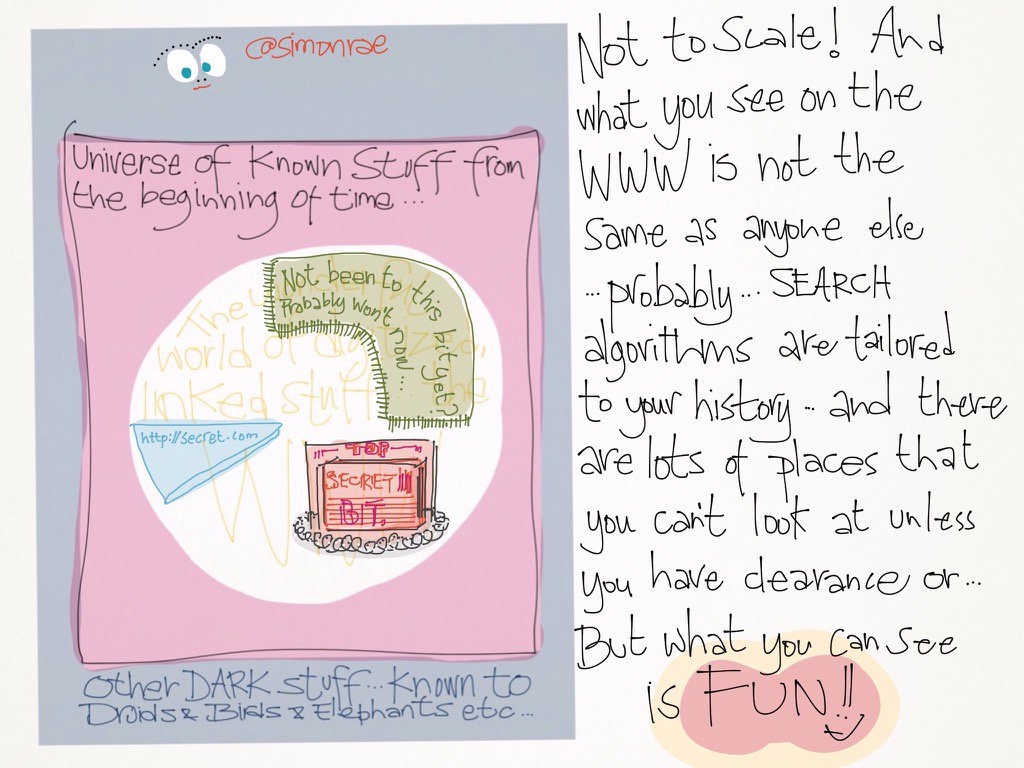 @simonrae
Universe of Known Stuff from
the beginning of time...
Not been to this bit yet?
Probably won't now...
The
world of digitized,
linked stuff... the
W
http://secret.com
TOP
SECRET!!!
BIT.
Other DARK stuff... Known to
Druids & Birds & Elephants etc...
Not to Scale! And
what you see on the
WWW is not the
same as anyone else
...probably... SEARCH
algorithms are tailored
to your history... and there
are lots of places that
you can't look at unless
you have clearance or...
But what you can see
is FUN!!